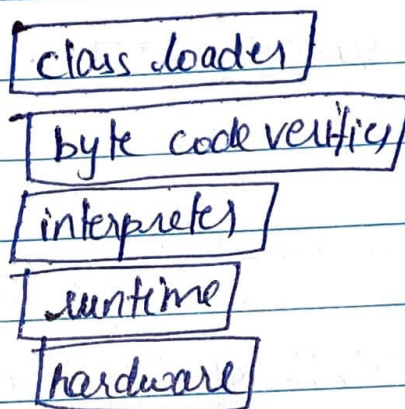 class loader
byte code verifier
interpreter
runtime
hardware